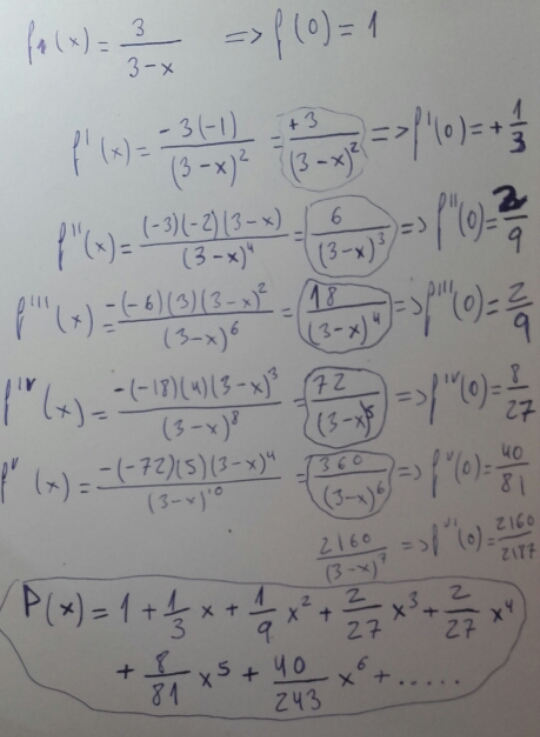 f₁(x) = 3/(3-x) => f(0) = 1
f'(x) = -3(-1)/(3-x)² = +3/(3-x)² => f'(0) = +1/3
f''(x) = (-3)(-2)(3-x)/(3-x)⁴ = 6/(3-x)³ => f''(0) = 2/9
f'''(x) = -(-6)(3)(3-x)²/(3-x)⁶ = 18/(3-x)⁴ => f'''(0) = 2/9
f'ᵛ(x) = -(-18)(4)(3-x)³/(3-x)⁸ = 72/(3-x)⁵ => f'ᵛ(0) = 8/27
fᵛ(x) = -(-72)(5)(3-x)⁴/(3-x)¹⁰ = 360/(3-x)⁶ => fᵛ(0) = 40/81
2160/(3-x)⁷ => fᵛ'(0) = 2160/2187
P(x) = 1 + 1/3 x + 1/9 x² + 2/27 x³ + 2/27 x⁴
+ 8/81 x⁵ + 40/243 x⁶ + .....